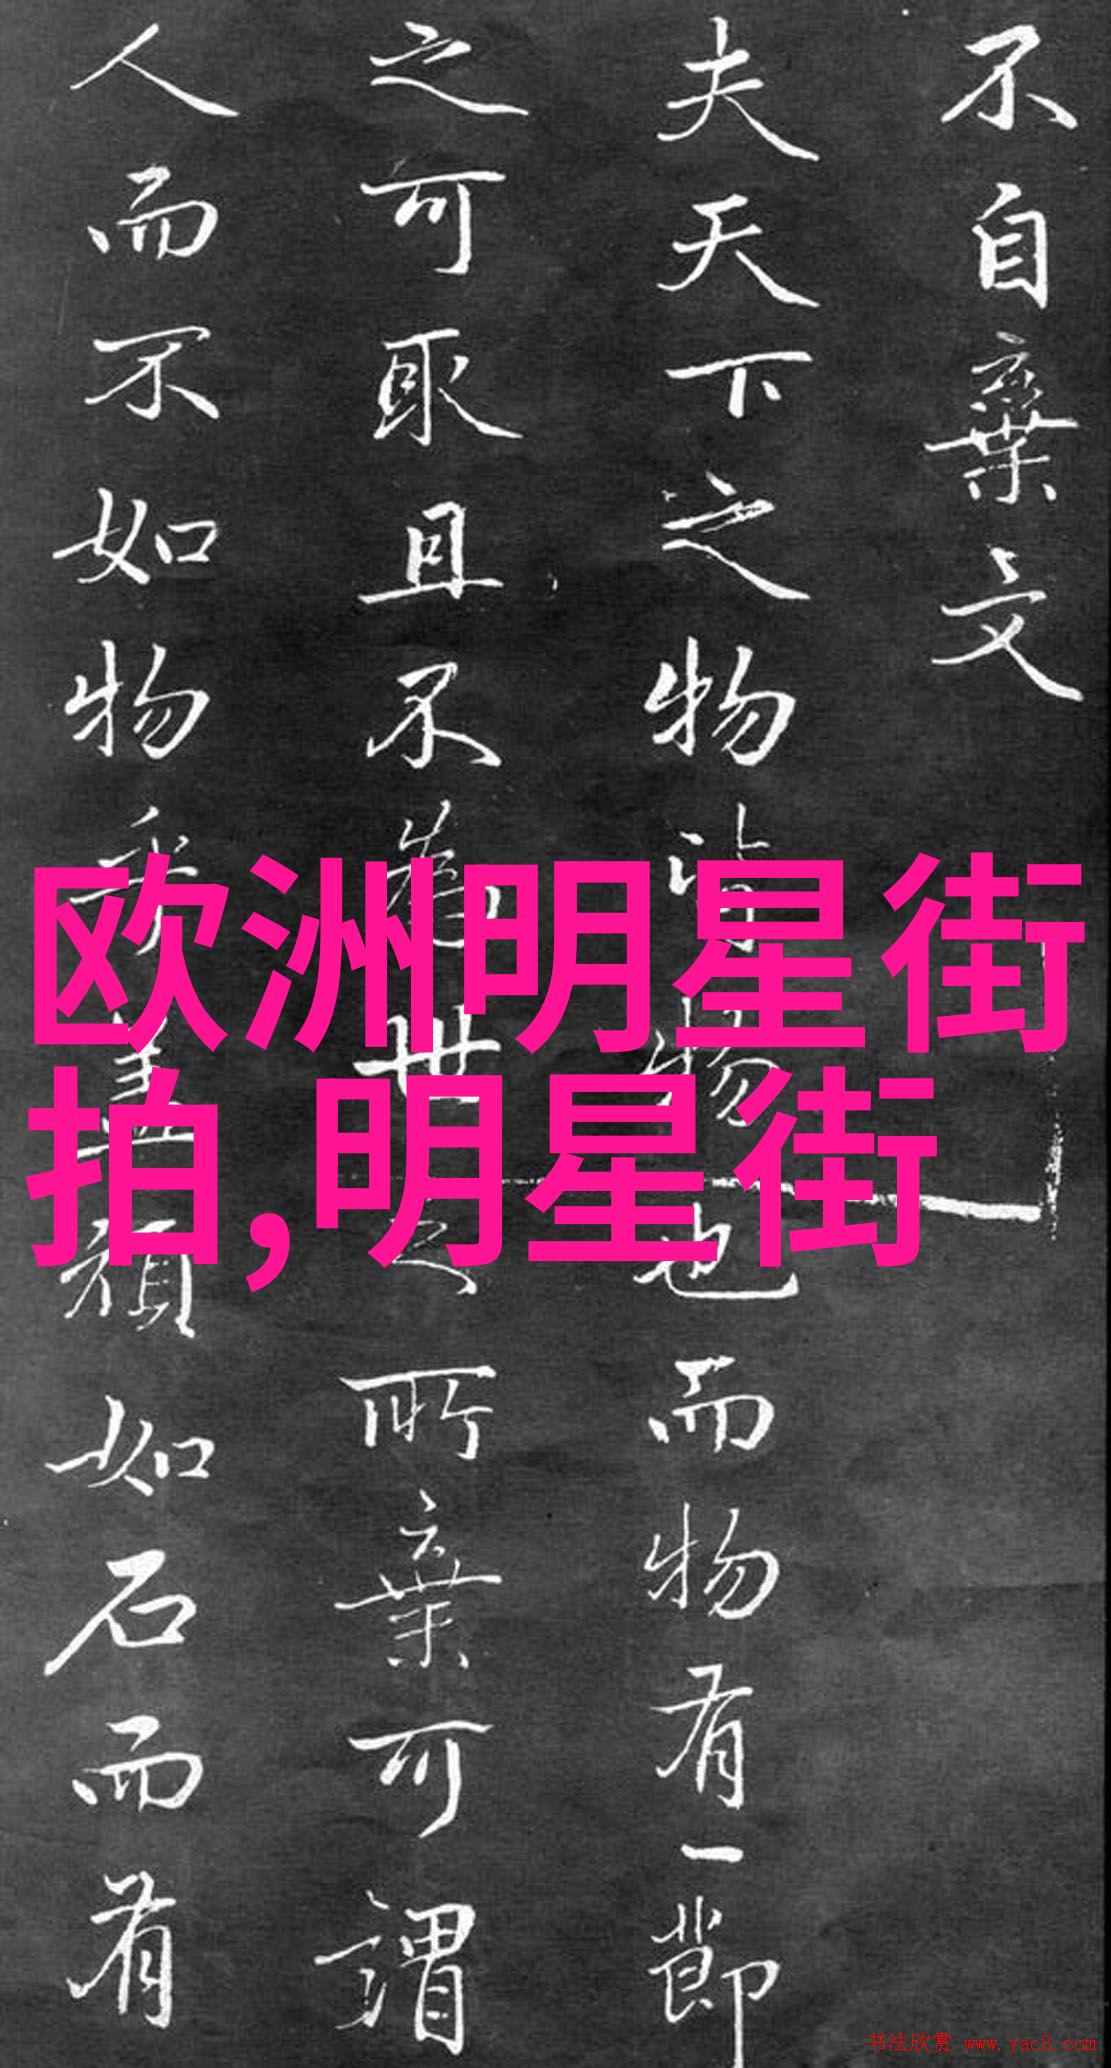 不自棄文
夫天下之物皆物也而物有一節
之可取且不為世之所棄可謂
人而不如物乎蓋頑如石而有
欧洲明星街
拍,明星街
书法欣赏 www.yac8.com